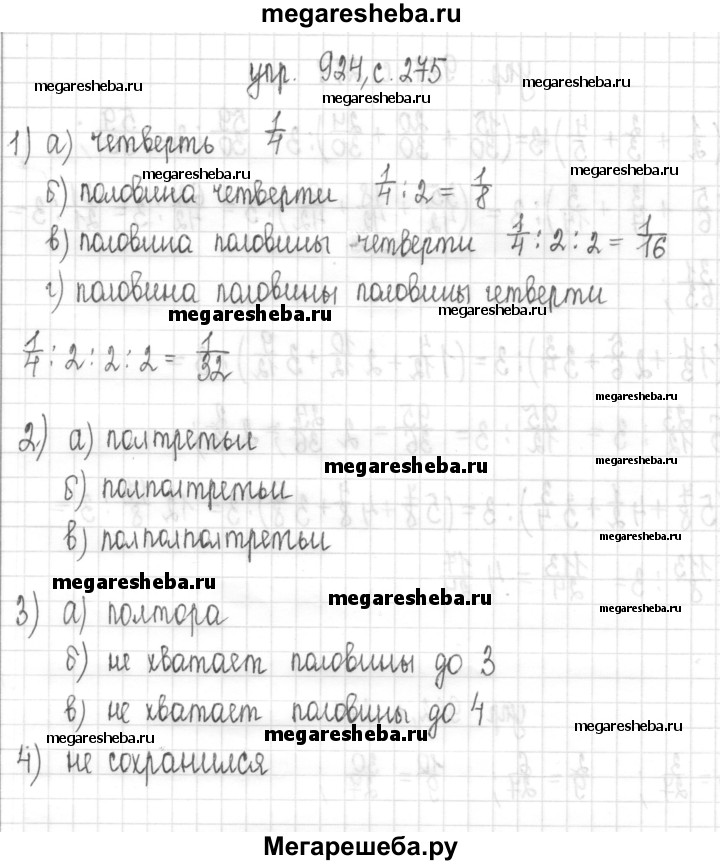 megaresheba.ru
упр. 924, с. 275
megaresheba.ru megaresheba.ru megaresheba.ru
1) а) четверть 1/4
megaresheba.ru megaresheba.ru
б) половина четверти 1/4 : 2 = 1/8
в) половина половины четверти 1/4 : 2 : 2 = 1/16
г) половина половины половины четверти
megaresheba.ru megaresheba.ru
1/4 : 2 : 2 : 2 = 1/32
megaresheba.ru
2) а) полтретьи
megaresheba.ru megaresheba.ru
б) полполтретьи
в) полполполтретьи
megaresheba.ru
megaresheba.ru megaresheba.ru megaresheba.ru
3) а) полтора
б) не хватает половины до 3
в) не хватает половины до 4
megaresheba.ru megaresheba.ru megaresheba.ru
4) не сохранился
Мегарешеба.ру